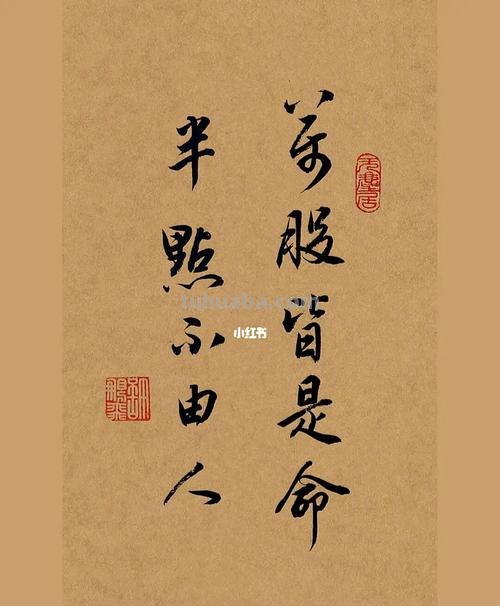 萬般皆是命
半點不由人
小红书
tuhuaba.com